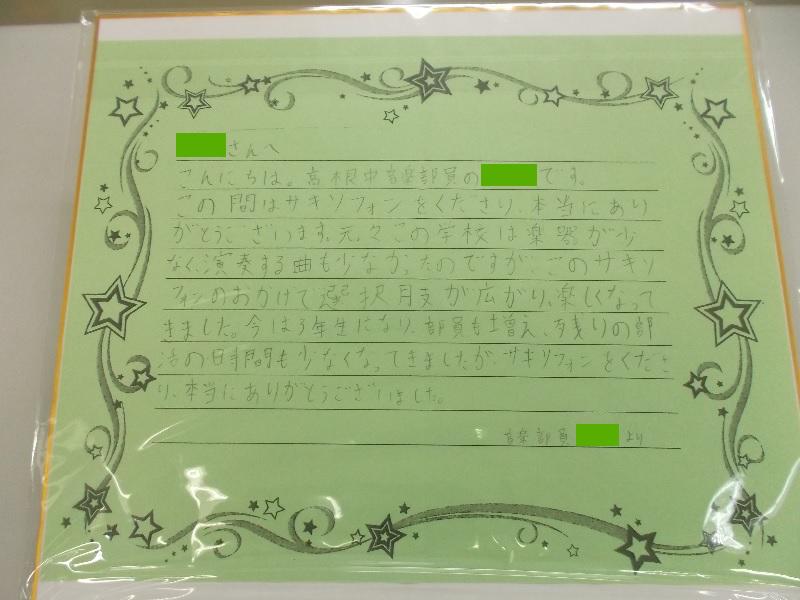 さんへ
こんにちは。高根中音楽部員の です。
この間はサキソフォンをくださり、本当にあり
がとうございます。元々この学校は楽器が少
なく、演奏する曲も少なかったのですが、このサキソ
フォンのおかげで選択肢が広がり、楽しくなって
きました。今は3年生になり、部員も増え、残りの部
活の時間も少なくなってきましたが、サキソフォンをくださ
り、本当にありがとうございました。
音楽部員 より